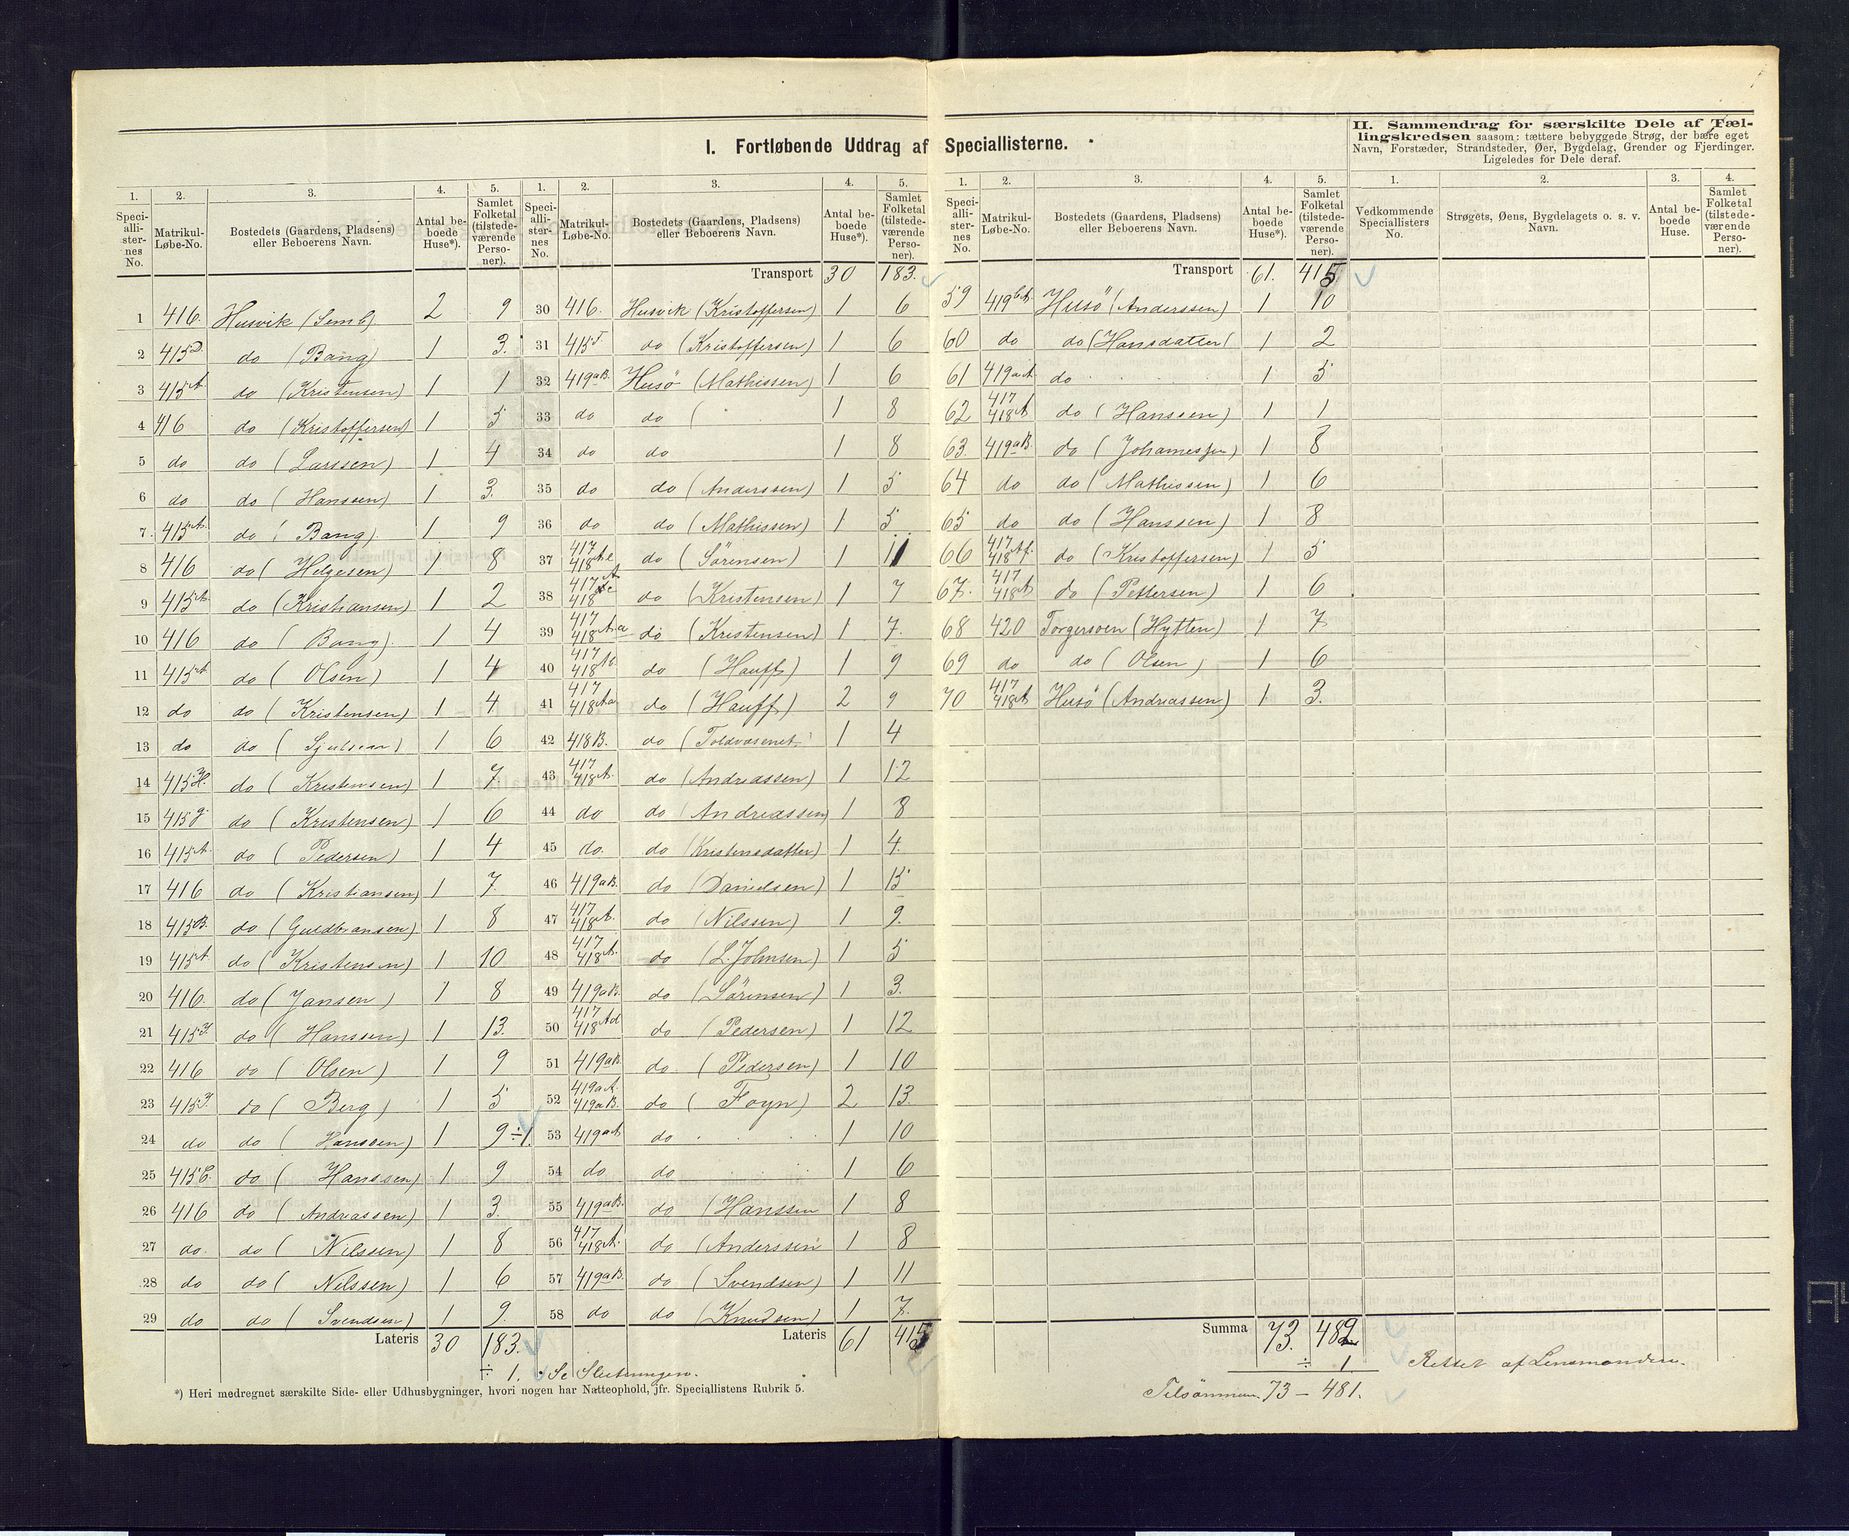 I. Fortløbende Uddrag af Speciallisterne.
II. Sammendrag for særskilte Dele af Tæl-
lingskredsen saasom: tættere bebyggede Strøg, der bære eget
Navn, Forstæder, Strandsteder, Øer, Bygdelag, Grender og Fjerdinger.
Ligeledes for Dele deraf.
1. 2. 3. 4. 5.
Speciallisternes No. Matrikul-Løbe-No. Bostedets (Gaardens, Pladsens) eller Beboerens Navn. Antal beboede Huse*). Samlet Folketal (tilstedeværende Personer).
1 416. Husvik (Semb) 2 9
2 415D. do (Bang) 1 3.
3 415A. do (Kristensen) 1 1
4 416 do (Kristoffersen) 1 5
5 do do (Larssen) 1 4
6 do do (Hanssen) 1 3.
7. 415A. do (Bang) 1 9
8 416 do (Helgesen) 1 8
9 415A. do (Kristiansen) 1 2
10 416 do (Bang) 1 4
11 415A do (Olsen) 1 4
12 do do (Kristensen) 1 4
13 do do 1 6
14 415H. do (Kristensen) 1 7.
15 415g do (Kristensen) 1 6
16 415A. do (Pedersen) 1 4
17 416 do (Kristiansen) 1 7.
18 415B. do (Guldbransen) 1 8
19 415A. do (Kristensen) 1 10
20 416. do (Jansen) 1 8
21 415 do (Hanssen) 1 13.
22 416 do (Olsen) 1 9
23 415 do (Berg) 1 5
24 do do (Hanssen) 1 9÷1.
25 415C. do (Hanssen) 1 9
26 416 do (Andreassen) 1 3.
27 do. do (Nilssen) 1 8
28 do do (Nilssen) 1 6
29 do do (Svendsen) 1 9.
Lateris 30 183.
÷ 1. Se Slutningen.
*) Heri medregnet særskilte Side- eller Udhusbygninger, hvori nogen har Natteophold, jfr. Speciallistens Rubrik 5.
1. 2. 3. 4. 5.
Speciallisternes No. Matrikul-Løbe-No. Bostedets (Gaardens, Pladsens) eller Beboerens Navn. Antal beboede Huse*). Samlet Folketal (tilstedeværende Personer).
Transport 30 183.
30 416. Husvik (Kristoffersen) 1 6
31 415 do (Kristoffersen) 1 6
32 419aB. Husö (Mathissen) 1 6
33 do do ( 1 8
34 do do 1 8
35 do do (Anderssen) 1 5
36 do do (Mathissen) 1 5
37 417 418Ae do (Sörensen) 1 11
38 417 418Ac do (Kristensen) 1 7
39 417 418A.a do (Kristensen) 1 7.
40 417 418 do (Hauff) 1 9
41 417 418Aa do (Hauff) 2 9
42 418B. do (Toldvæsenet) 1 4
43 417 418A. do (Andreassen) 1 12
44 do do (Andreassen) 1 8
45 do. do (Kristensdatter) 1 4.
46 419aB. do (Danielsen) 1 15
47 417 418A. do (Nilssen) 1 9.
48 417 418A. do (L. Johnsen) 1 5
49 419aB. do (Sörensen) 1 3.
50 417 418Ad do (Pedersen) 1 12
51 419aB. do. (Pedersen) 1 10
52 419aA. 419aB. do (Foyn) 2 13.
53 419aA do 1 10
54 do do 1 6
55 419aB. do (Hanssen 1 8
56 417 418A. do (Anderssen 1 8
57 419aB. do (Svendsen) 1 11
58 do do (Knudsen) 1 7.
Lateris 61 415
1. 2. 3. 4. 5.
Speciallisternes No. Matrikul-Løbe-No. Bostedets (Gaardens, Pladsens) eller Beboerens Navn. Antal beboede Huse*). Samlet Folketal (tilstedeværende Personer).
Transport 61. 415
59 419bA Husö (Anderssen) 1 10
60 do do (Hansdatter( 1 2
61 419aA do 1 5
62 417 418A do (Hanssen) 1 1
63. 419aB. do (Johannessen) 1 8
64 do do (Mathissen) 1 6
65 do do (Hanssen) 1 8
66 417 418Af. do (Kristoffersen) 1 5
67. 417 418A do (Pettersen) 1 6
68 420 Torgersøen (Hytten) 1 7
69 do do (Olsen) 1 6
70 417 418A Husö (Andreassen) 1 3.
Summa 73. 482
÷ 1 Rettet af Lensmanden.
Tilsammen 73 – 481.
1. 2. 3. 4.
Vedkommende Speciallisters No. Strøgets, Øens, Bygdelagets o. s. v. Navn. Antal beboede Huse. Samlet Folketal (tilstedeværende Personer).